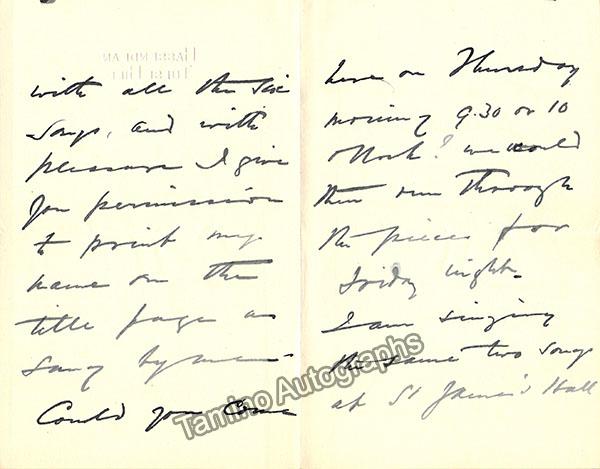 with all the six
songs, and with
pleasure I give
you permission
to print my
name on the
title page as
sung by me —
Could you come
here on Thursday
morning 9.30 or 10
o'clock? we could
then run through
the pieces for
Friday night.
I am singing
the same two songs
at St James's Hall
Tamino Autographs